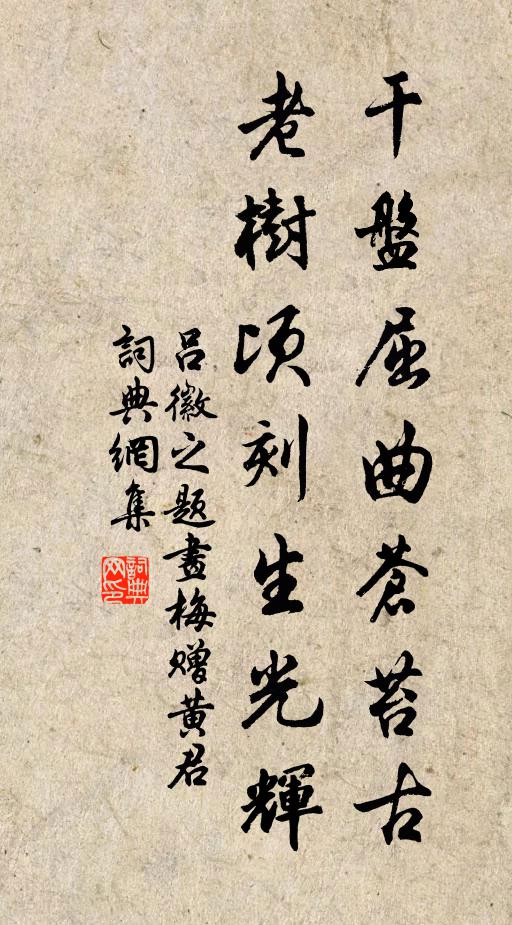 干盤屈曲蒼苔古
老樹頃刻生光輝
呂徽之題畫梅贈黃君
詞典網集
詞典網印